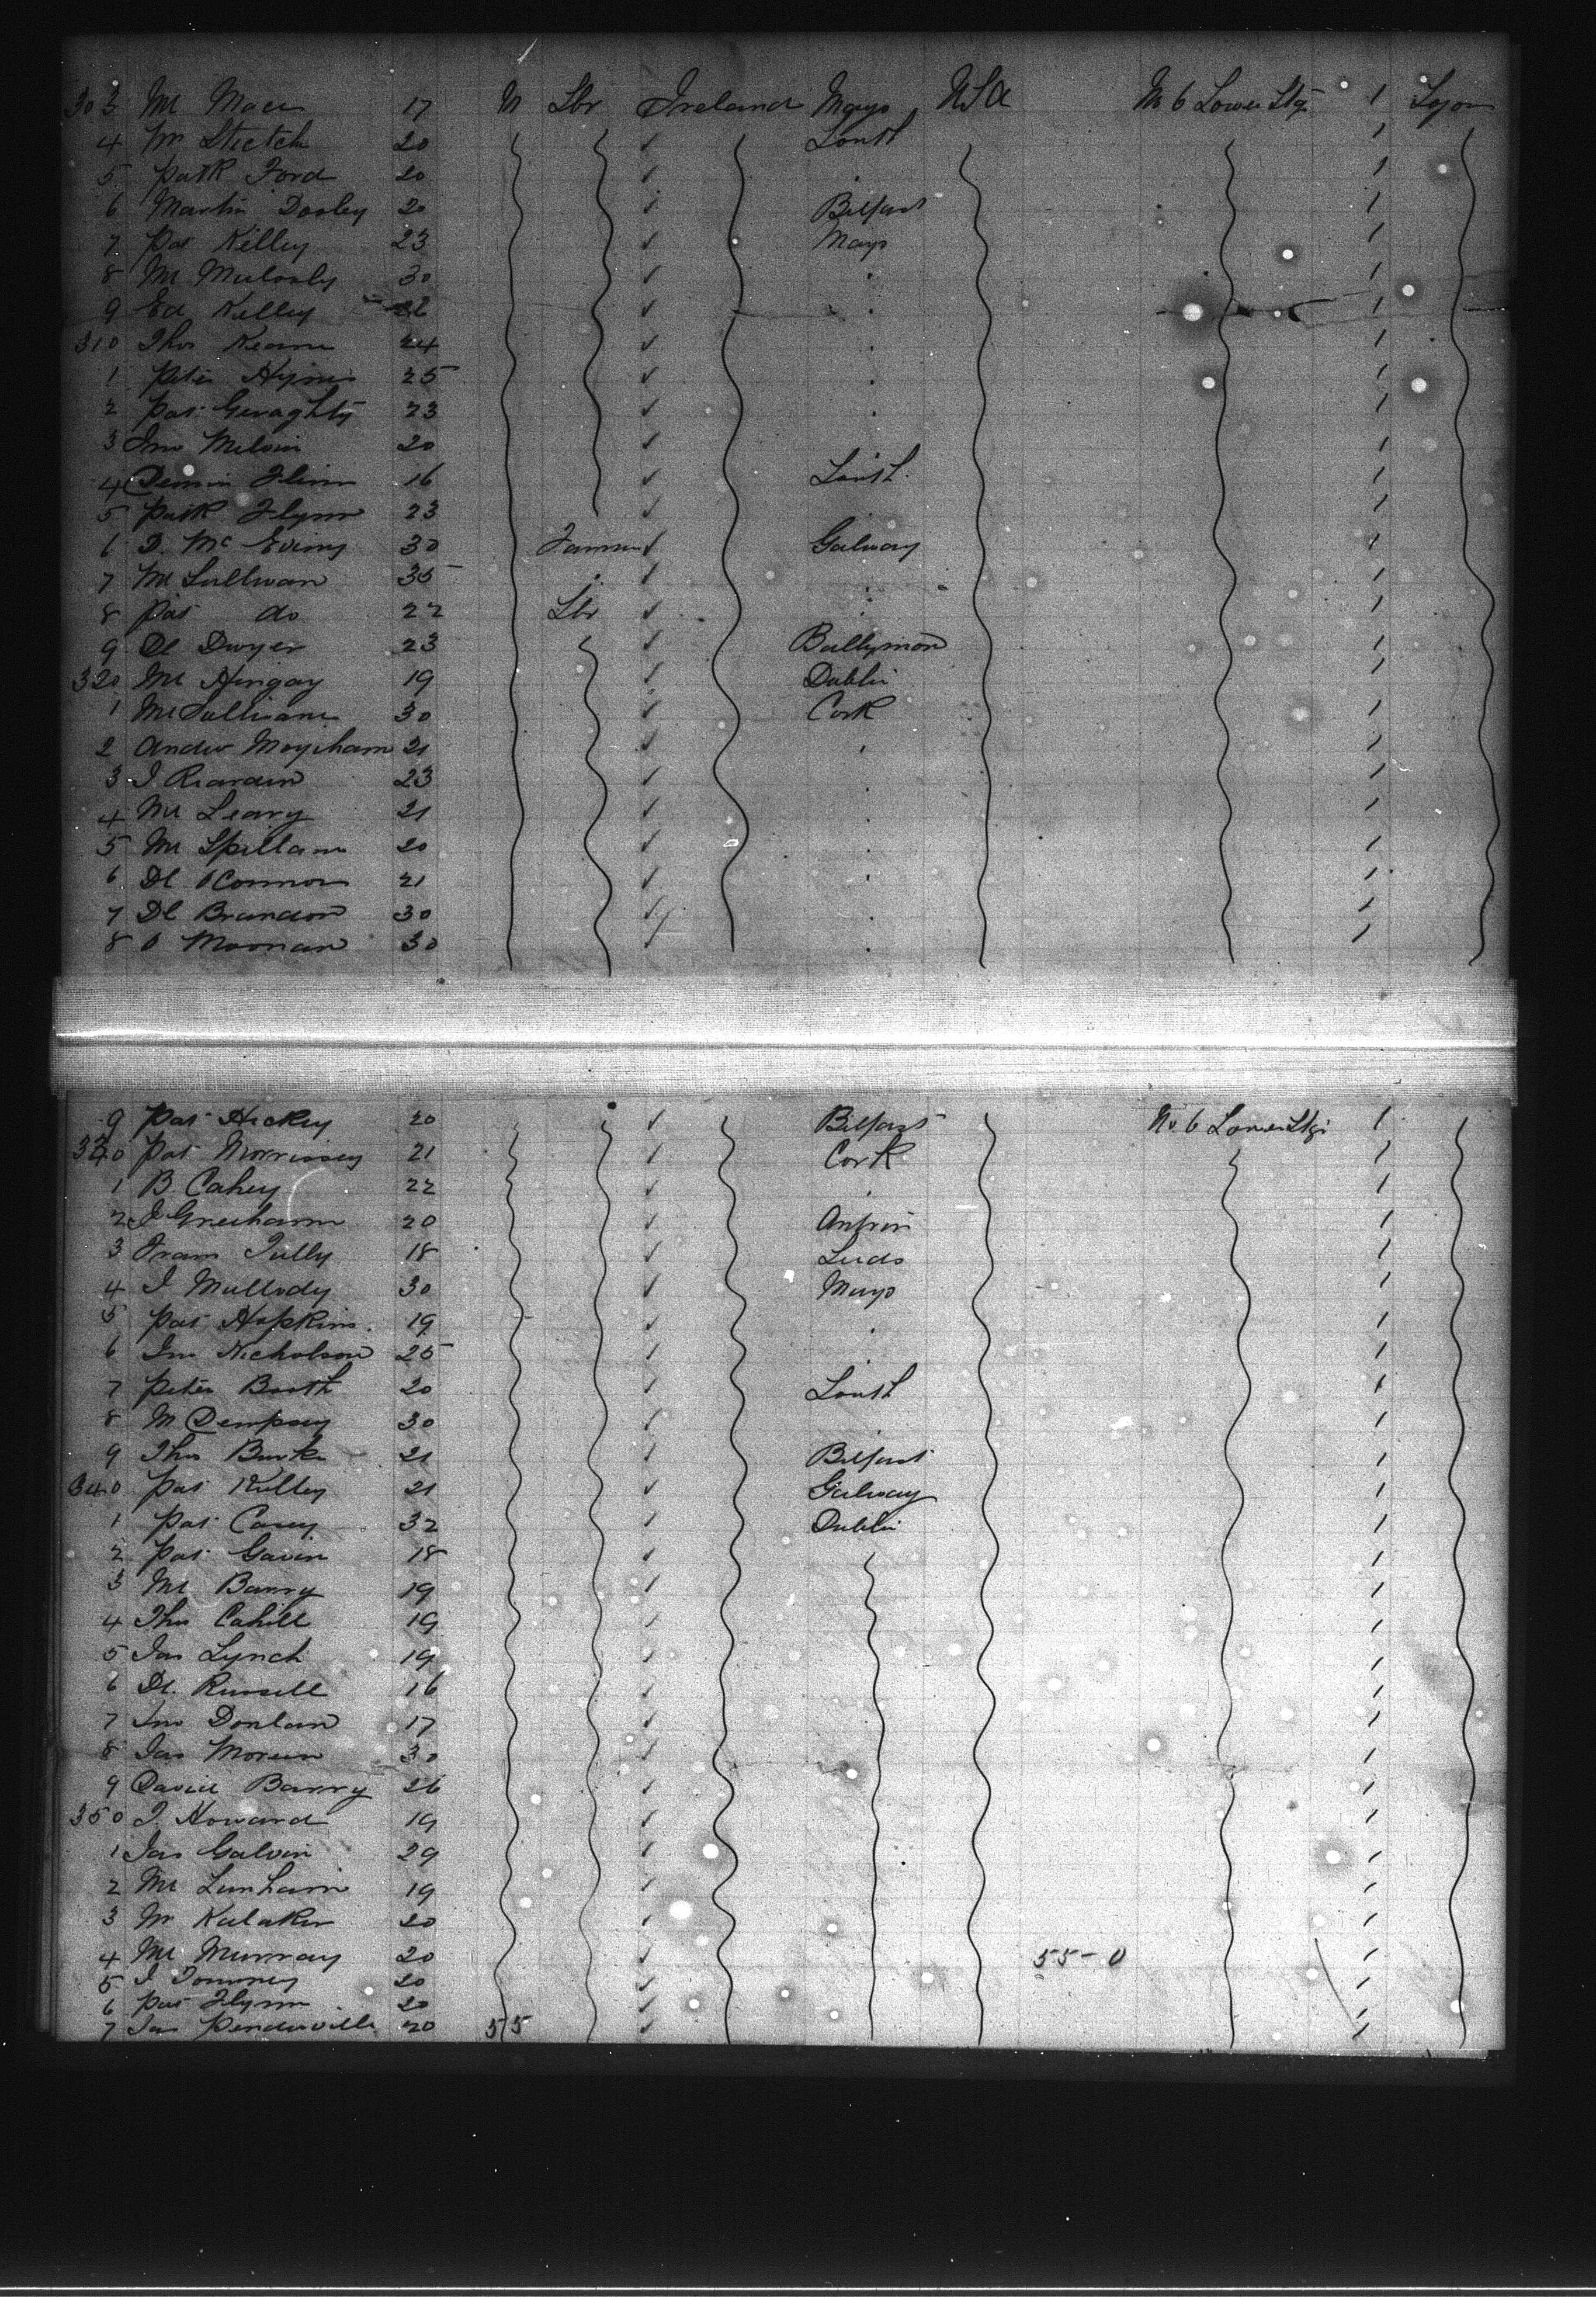 303 Ml Mace 17 M Lbr Ireland Mayo USA No 6 Lower Stge 1 Sojon
4 Wm Stretch 20 ✓ Louth 1
5 Patk Ford 20 ✓ . 1
6 Martin Dooley 20 ✓ Belfast 1
7 Pat Kelley 23 ✓ Mayo 1
8 Ml 30 ✓ . 1
9 Ed Kelley ✓ . 1
310 Thos Keane 24 ✓ . 1
1 Peter Hynes 25 ✓ . 1
2 Pat Geraghty 23 ✓ . 1
3 Jno Melvin 20 ✓ 1
4 Dennis Flinn 16 ✓ Louth 1
5 Patk Flynn 23 ✓ 1
6 D. Mc 30 Farmer ✓ Galway 1
7 Ml Sullivan 35 . ✓ . 1
8 Pat do 22 Lbr ✓ . 1
9 Dl Dwyer 23 ✓ Ballymon 1
320 Ml Hingay 19 ✓ Dublin 1
1 Ml Sullivan 30 ✓ Cork 1
2 Andw Moyiham 21 ✓ . 1
3 J Reardin 23 ✓ . 1
4 Ml Leary 21 ✓ . 1
5 Ml Spillane 20 ✓ . 1
6 Dl OConnor 21 ✓ . 1
7 Dl Brandon 30 ✓ . 1
8 O Moonan 30 ✓ . 1
9 Pat Hickey 20 ✓ Belfast No 6 Lower Stge 1
330 Pat Morrissey 21 ✓ Cork 1
1 B. Cahey 22 ✓ . 1
2 J Greehann 20 ✓ Antrim 1
3 Fram Tully 18 ✓ Leeds 1
4 J Mullody 30 ✓ Mayo 1
5 Pat Hopkins 19 ✓ . 1
6 Jno Nicholson 25 ✓ . 1
7 Peter Booth 20 ✓ Louth 1
8 M Dempsey 30 ✓ . 1
9 Thos Burke 21 ✓ Belfast 1
340 Pat Kelley 21 ✓ Galway 1
1 Pat Casey 32 ✓ Dublin 1
2 Pat Gavin 18 ✓ 1
3 Ml Barry 19 ✓ 1
4 Thos Cahill 19 ✓ 1
5 Jas Lynch 19 ✓ 1
6 Dl. Russell 16 ✓ 1
7 Jno Donlan 17 ✓ 1
8 Jas Moreen 30 ✓ 1
9 David Barry 26 ✓ 1
350 J. Howard 19 ✓ 1
1 Jas Galvin 29 ✓ 1
2 Ml Lenhain 19 ✓ 1
3 Wm 20 ✓ 1
4 Ml Murray 20 ✓ 55-0 1
5 J Downey 20 ✓ 1
6 Pat Flynn 20 ✓ 1
7 Jas Pendeville 20 55 ✓ 1